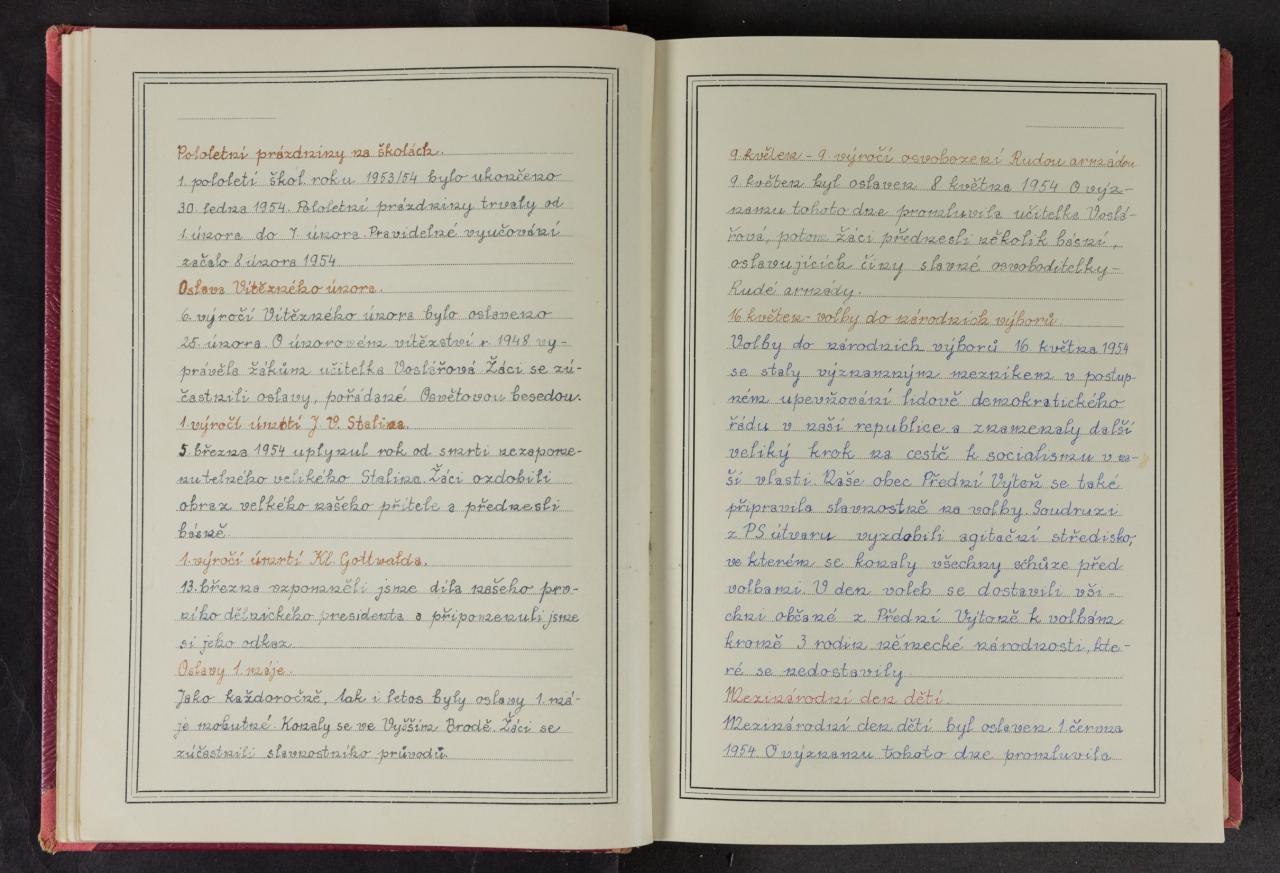 Pololetní prázdniny na školách.
1. pololetí škol. roku 1953/54 bylo ukončeno
30. ledna 1954. Pololetní prázdniny trvaly od
1. února do 7. února. Pravidelné vyučování
začalo 8. února 1954.
Oslava Vítězného února.
6. výročí Vítězného února bylo oslaveno
25. února. O únorovém vítězství r. 1948 vy-
právěla žákům učitelka Voslářová. Žáci se zú-
častnili oslavy, pořádané Osvětovou besedou.
1. výročí úmrtí J. V. Stalina.
5. března 1954 uplynul rok od smrti nezapome-
nutelného velikého Stalina. Žáci ozdobili
obraz velkého našeho přítele a přednesli
básně.
1. výročí úmrtí Kl. Gottwalda.
13. března vzpomněli jsme díla našeho prv-
ního dělnického presidenta a připomenuli jsme
si jeho odkaz.
Oslavy 1. máje.
Jako každoročně, tak i letos byly oslavy 1. má-
je mohutné. Konaly se ve Vyšším Brodě. Žáci se
zúčastnili slavnostního průvodu.
9. květen - 9. výročí osvobození Rudou armádou
9. květen byl oslaven 8. května 1954. O výz-
namu tohoto dne promluvila učitelka Voslá-
řová, potom žáci přednesli několik básní,
oslavujících činy slavné osvoboditelky -
Rudé armády.
16. květen - volby do národních výborů.
Volby do národních výborů 16. května 1954
se staly významným mezníkem v postup-
ném upevňování lidově demokratického
řádu v naší republice a znamenaly další
veliký krok na cestě k socialismu v na-
ší vlasti. Naše obec Přední Výtoň se také
připravila slavnostně na volby. Soudruzi
z PS útvaru vyzdobili agitační středisko,
ve kterém se konaly všechny schůze před
volbami. V den voleb se dostavili vši-
chni občané z Přední Výtoně k volbám
kromě 3 rodin německé národnosti, kte-
ré se nedostavily.
Mezinárodní den dětí
Mezinárodní den dětí byl oslaven 1. června
1954. O významu tohoto dne promluvila